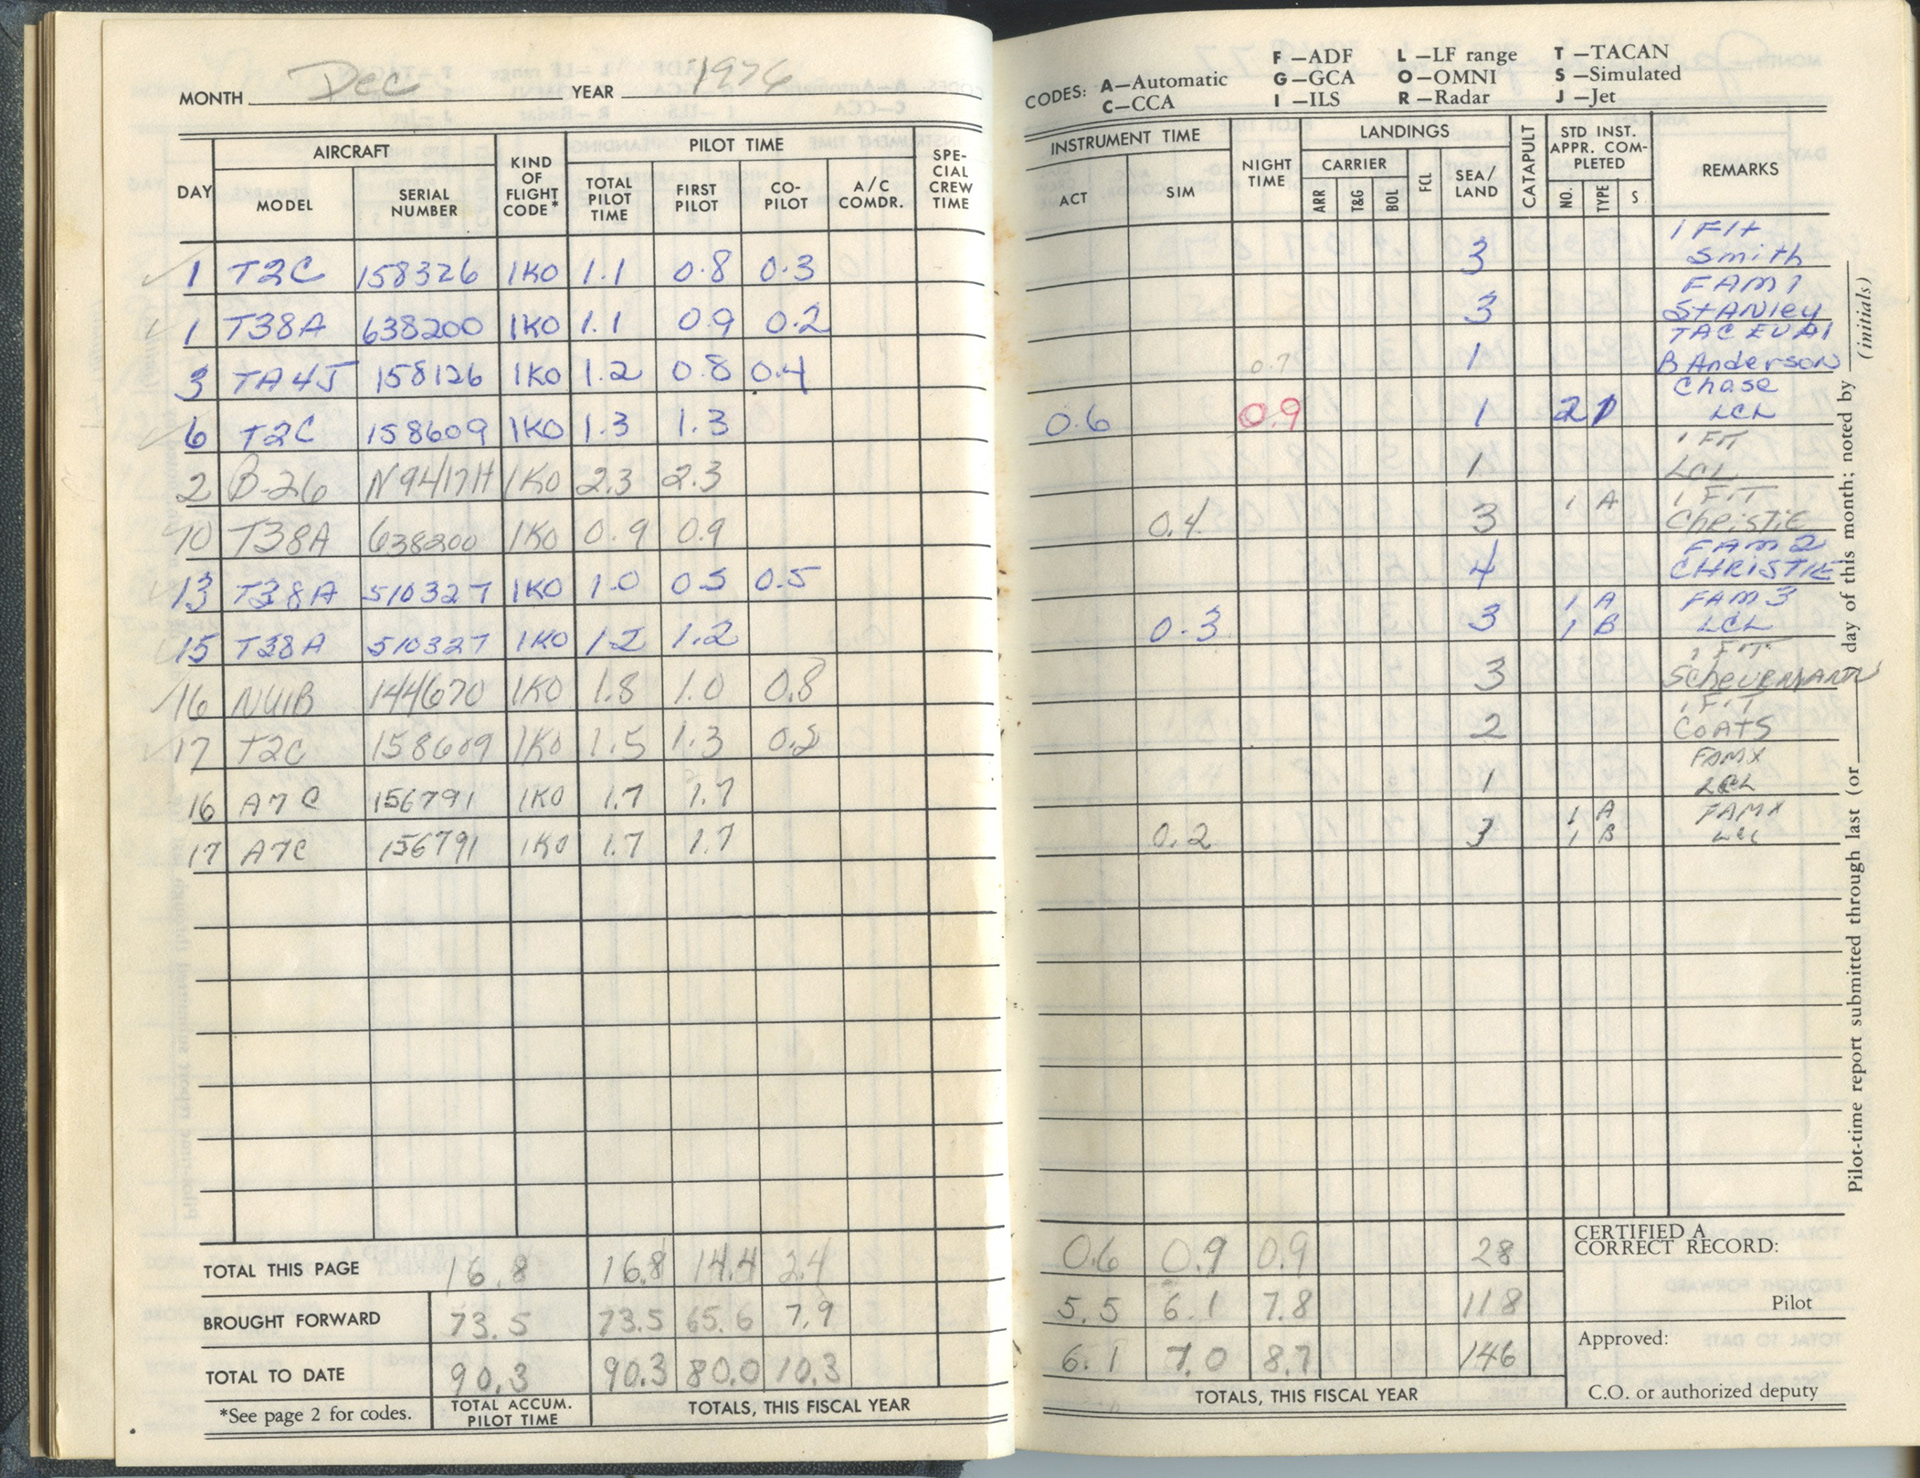 MONTH Dec YEAR 1976
DAY AIRCRAFT KIND OF FLIGHT CODE* PILOT TIME SPE-CIAL CREW TIME
MODEL SERIAL NUMBER TOTAL PILOT TIME FIRST PILOT CO-PILOT A/C COMDR.
1 T2C 158326 1KO 1.1 0.8 0.3
1 T38A 638200 1KO 1.1 0.9 0.2
3 TA4J 158126 1KO 1.2 0.8 0.4
6 T2C 158609 1KO 1.3 1.3
2 B-26 N9417H 1KO 2.3 2.3
10 T38A 638200 1KO 0.9 0.9
13 T38A 510327 1KO 1.0 0.5 0.5
15 T38A 510327 1KO 1.2 1.2
16 NU1B 144670 1KO 1.8 1.0 0.8
17 T2C 158609 1KO 1.5 1.3 0.2
16 A7C 156791 1KO 1.7 1.7
17 A7C 156791 1KO 1.7 1.7
TOTAL THIS PAGE 16.8 16.8 14.4 2.4
BROUGHT FORWARD 73.5 73.5 65.6 7.9
TOTAL TO DATE 90.3 90.3 80.0 10.3
*See page 2 for codes. TOTAL ACCUM. PILOT TIME TOTALS, THIS FISCAL YEAR
F—ADF L—LF range T—TACAN
CODES: A—Automatic G—GCA O—OMNI S—Simulated
C—CCA I—ILS R—Radar J—Jet
INSTRUMENT TIME NIGHT TIME LANDINGS CATAPULT STD INST. APPR. COM-PLETED REMARKS
ACT SIM CARRIER FCL SEA/LAND NO. TYPE S
ARR T&G BOL
1 FIt
3 Smith
FAM1
3 STANley
TAC EVAl
0.7 1 B Anderson
Chase
0.6 0.9 1 2 LCL
1 FIT
1 LCL
1 A 1 FIT
0.4 3 Christie
FAM2
4 CHRISTIE
1 A FAM3
0.3 3 1 B LCL
1 FIT
3 Scheuermann
1 FIT
2 COATS
FAMX
1 LCL
1 A FAMX
0.2 3 1 B LCL
0.6 0.9 0.9 28
5.5 6.1 7.8 118
6.1 7.0 8.7 146
TOTALS, THIS FISCAL YEAR
CERTIFIED A CORRECT RECORD:
Pilot
Approved:
C.O. or authorized deputy
Pilot-time report submitted through last (or day of this month; noted by (initials)